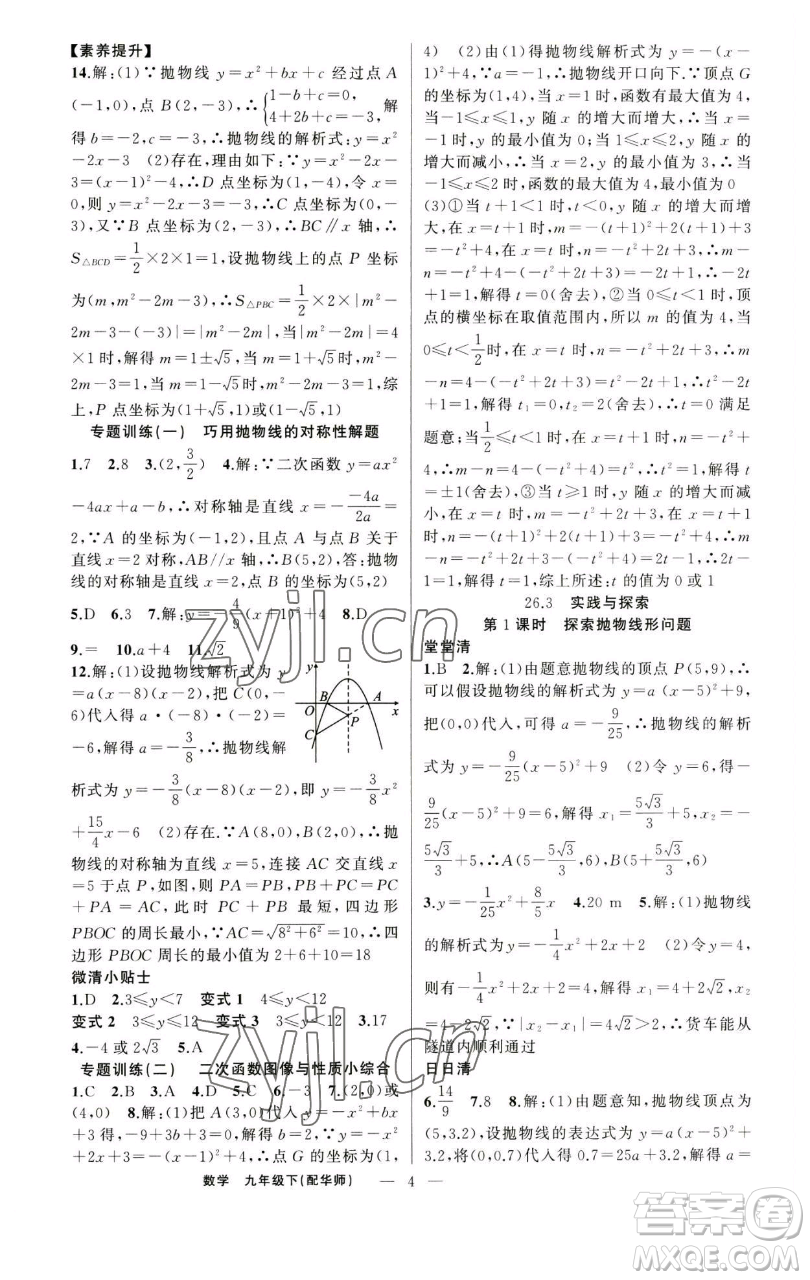 【素养提升】
14.解:(1)∵抛物线 y=x²+bx+c 经过点 A
(-1,0),点 B(2,-3),∴{1-b+c=0, 4+2b+c=-3, 解
得 b=-2,c=-3,∴抛物线的解析式:y=x²
-2x-3 (2)存在,理由如下:∵y=x²-2x-
3=(x-1)²-4,∴D 点坐标为(1,-4),令 x=
0,则 y=x²-2x-3=-3,∴C 点坐标为(0,-
3),又∵B 点坐标为(2,-3),∴BC∥x 轴,∴
S△BCD=1/2×2×1=1,设抛物线上的点 P 坐标
为(m,m²-2m-3),∴S△PBC=1/2×2×|m²-
2m-3-(-3)|=|m²-2m|,当|m²-2m|=4
×1 时,解得 m=1±√5,当 m=1±√5 时,m²-
2m-3=1,当 m=1-√5 时,m²-2m-3=1,综
上,P 点坐标为(1+√5,1)或(1-√5,1)
专题训练(一) 巧用抛物线的对称性解题
1.7 2.8 3.(2,3/2) 4.解:∵二次函数 y=ax²
-4ax+a-b,∴对称轴是直线 x=-(-4a)/(2a)=
2,∵A 的坐标为(-1,2),且点 A 与点 B 关于
直线 x=2 对称,AB//x 轴,∴B(5,2),答:抛物
线的对称轴是直线 x=2,点 B 坐标为(5,2)
5.D 6.3 7.解:y=-4/9(x+1)²+4 8.D
9.= 10.a+4 11.√2
12.解:(1)设抛物线解析式为 y
=a(x-8)(x-2),把 C(0,-
6)代入得 a·(-8)·(-2)=
-6,解得 a=-3/8,∴抛物线解
析式为 y=-3/8(x-8)(x-2),即 y=-3/8x²
+15/4x-6 (2)存在.∵A(8,0),B(2,0),∴抛
物线的对称轴为直线 x=5,连接 AC 交直线 x
=5 于点 P,如图,则 PA=PB,∴PB+PC=PC
+PA=AC,此时 PB+PC 最短,四边形
PBOC 的周长最小,∵AC=√(8²+6²)=10,∴四
边形 PBOC 周长的最小值为 2+6+10=18
y
B
A
O
x
P
C
微清小贴士
1.D 2.3≤y<7 变式 1 4≤y<12
变式 2 3≤y≤12 变式 3 3≤y<12 3.17
4.-4 或 2√3 5.A
专题训练(二) 二次函数图像与性质小综合
1.C 2.B 3.A 4.D 5.C 6.-3 7.(2,0)或
(4,0) 8.解:(1)把 A(3,0)代入 y=-x²+bx
+3 得,-9+3b+3=0,解得 b=2,∴y=-x²
+2x+3=-(x-1)²+4,∴点 G 的坐标为(1,
4) (2)由(1)得抛物线解析式为 y=-(x-
1)²+4,∵a=-1,∴抛物线开口向下.∵顶点 G
的坐标为(1,4),∴当 x=1 时,函数有最大值为 4,
当-1≤x≤1,y 随 x 的增大而增大,∴当 x=
-1 时,y 的最小值为 0;当 1≤x≤2,y 随 x 的
增大而减小,∴当 x=2 时,y 的最小值为 3,∴当
-1≤x≤2 时,函数的最大值为 4,最小值为 0
(3)①当 t+1<1 时,t<0,y 随 x 的增大而增
大,在 x=t+1 时,m=-(t+1)²+2(t+1)+3
=-t²+4,在 x=t 时,n=-t²+2t+3,∴m-
n=-t²+4-(-t²+2t+3)=-2t+1,∴-2t
+1=1,解得 t=0(舍去),②当 t+1≥1 时,顶
点的横坐标在取值范围内,所以 m 的值为 4,当
0≤t<1/2时,在 x=t 时,n=-t²+2t+3,∴m
-n=4-(-t²+2t+3)=t²-2t+1,∴t²-2t
+1=1,解得 t₁=0,t₂=2(舍去),∴t=0 满足
题意;当1/2≤t≤1 时,在 x=t+1 时,n=-t²+4,
∴m-n=4-(-t²+4)=t²,∴t²=1,解得 t=
±1(t=-1 舍去),③当 t≥1 时,y 随 x 的增大而减
小,在 x=t 时,m=-t²+2t+3,在 x=t+1
时,n=-(t+1)²+2(t+1)+3=-t²+4,∴m
-n=-t²+2t+3-(-t²+4)=2t-1,∴2t-1
=1,解得 t=1,综上所述:t 的值为 0 或 1
26.3 实践与探索
第 1 课时 探索抛物线形问题
堂堂清
1.B 2.解:(1)由题意抛物线的顶点 P(5,9),∴
可以假设抛物线的解析式为 y=a(x-5)²+9,
把(0,0)代入,可得 a=-9/25,∴抛物线的解析
式为 y=-9/25(x-5)²+9 (2)令 y=6,得-
9/25(x-5)²+9=6,解得 x₁=5√3/3+5,x₂=-
5√3/3+5,∴A(5-5√3/3,6),B(5+5√3/3,6)
3.y=-1/25x²+8/5x 4.20 m 5.解:(1)抛物线
的解析式为 y=-1/4x²+2x+2 (2)令 y=4,
则有-1/4x²+2x+2=4,解得 x₁=4+2√2,x₂
=4-2√2,∵|x₂-x₁|=4√2>4,∴货车能从
隧道内顺利通过
日日清
6.14/9 7.8 8.解:(1)由题意知,抛物线顶点为
(5,3.2),设抛物线的表达式为 y=a(x-5)²+
3.2,将(0,0.7)代入得:0.7=25a+3.2,解得 a=
数学 九年级下(配华师) — 4 —
zyjl.cn
zyjl.cn
答案圈
MXQE.COM